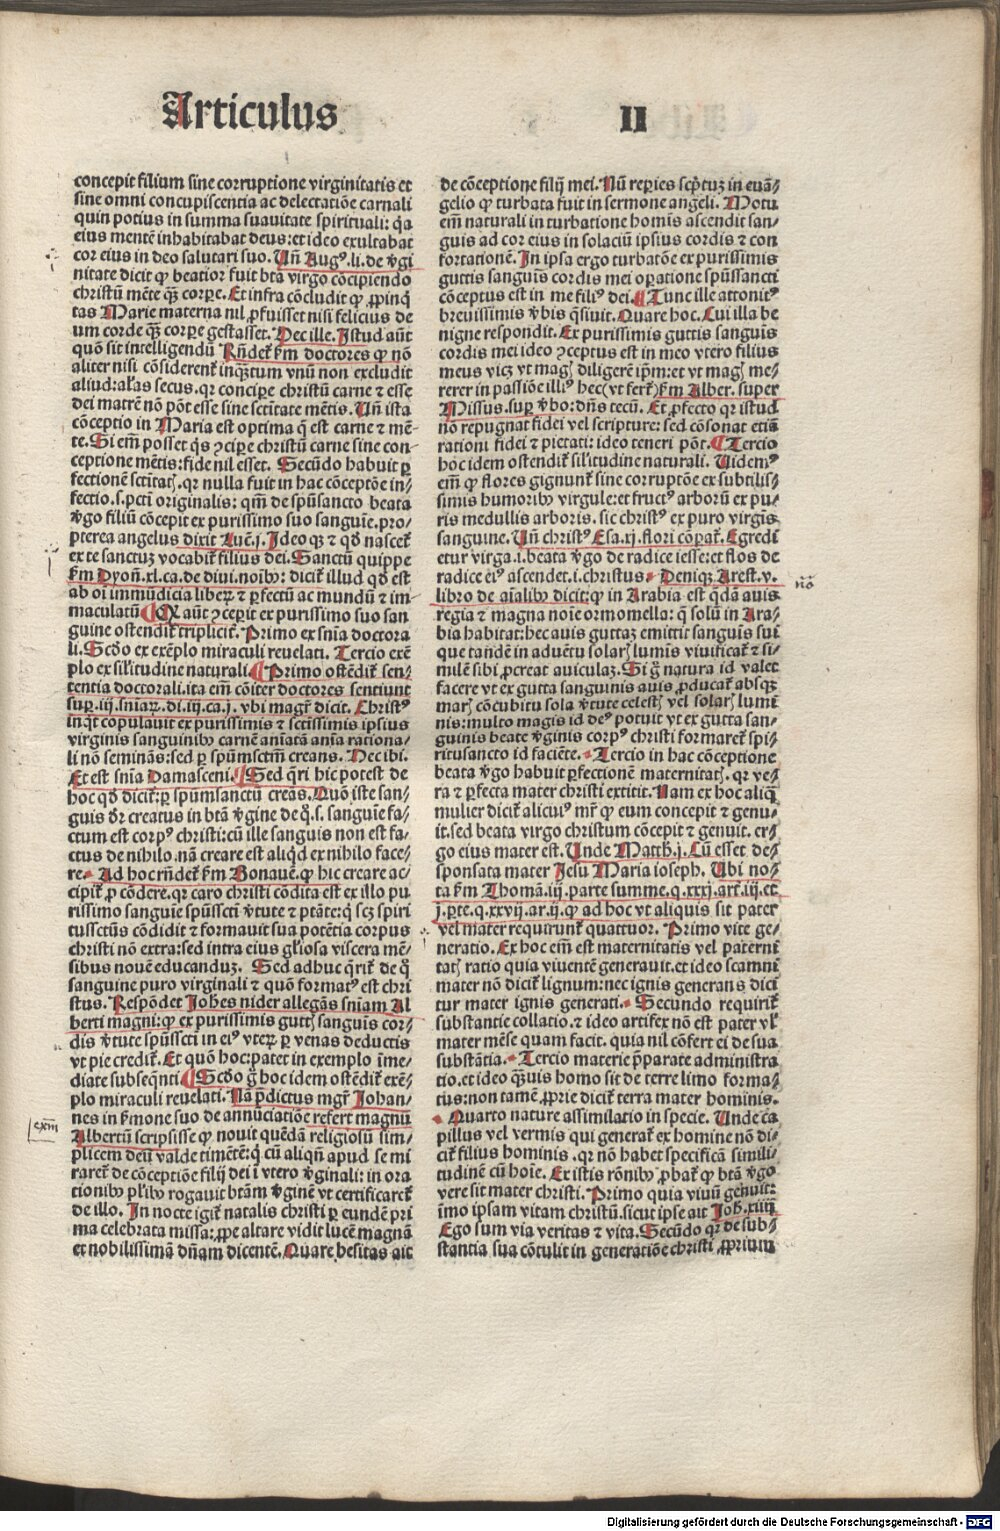 Articulus II
concepit filium sine corruptione virginitatis et
sine omni concupiscentia ac delectatiōe carnali
quin potius in summa suauitate spirituali: q̄a
eius mentē inhabitabat deus: et ideo exultabat
cor eius in deo salutari suo. Uñ Augꝰ.li.de v̄gi
nitate dicit ꝙ beatior fuit bt̄a virgo cōcipiendo
christū mēte q̄ꝫ corꝑe. Et infra cōcludit ꝙ ꝓpinq̄
tas Marie materna nil ꝓfuisset nisi felicius de
um corde q̄ꝫ corꝑe gestasset. Hec ille. Istud aūt
quō sit intelligendū Rn̄deṫ ẜm doctores ꝙ nō
aliter nisi cōsiderent̄ inq̄ꝫtum vnū non excludit
aliud: al̓as secus. qꝛ conciꝑe christū carne ⁊ esse
dei matrē nō pōt esse sine sct̄itate mētis. Uñ ista
cōceptio in Maria est optima q̄ est carne ⁊ mē-
te. Si em̄ posset q̄s ꝯciꝑe christū carne sine con-
ceptione mētis: fide nil esset. Secūdo habuit ꝑ
fectionē sctītatꝭ. qꝛ nulla fuit in hac cōceptōe in⸗
fectio.s.pctī originalis: qm̄ de spūsancto beata
v̄go filiū cōcepit ex purissimo suo sanguīe. pro⸗
pterea angelus dixit Luc̄.j. Ideoqꝫ ⁊ qd̄ nasceṫ
ex te sanctuꝫ vocabiṫ filius dei. Sanctū quippe
ẜm Dyoñ.xl.ca.de diui.noībꝰ: diciṫ illud qd̄ est
ab oī immūdicia liberꝝ ⁊ ꝑfectū ac mundū ⁊ im⸗
maculatū ¶ Qꝫ aūt ꝯcepit ex purissimo suo san
guine ostendiṫ tripliciṫ. Primo ex sn̄ia doctora
li. Scd̄o ex exēplo miraculi reuelati. Tercio exē
plo ex sil̓itudine naturali. ¶ Primo ostēdiṫ sen⸗
tentia doctorali. ita em̄ cōiter doctores sentiunt
suꝑ.iij.sn̄iaꝝ.di.iij.ca.j. vbi magr̄ dicit. Christꝰ
inq̄t copulauit ex purissimis ⁊ sctissimis ipsius
virginis sanguinibꝰ carnē aīatā aīa rationa⸗
li nō seminās: sed ꝑ spūmsctm̄ creans. Hec ibi.
Et est sn̄ia Damasceni. ¶ Sed q̄ri hic potest de
hoc qd̄ diciṫ: ꝑ spūmsanctū creās. Quō iste san⸗
guis dr̄ creatus in bt̄ā v̄gine de q̄.s. sanguīe fa⸗
ctum est corpꝰ christi: cū ille sanguis non est fa⸗
ctus de nihilo. nā creare est aliqd̄ ex nihilo face⸗
re. Ad hoc rn̄deṫ ẜm Bonauē. ꝙ hic creare ac⸗
cipiṫ ꝓ cōdere. qꝛ caro christi cōdita est ex illo pu
rissimo sanguīe spūsscti v̄tute ⁊ ptāte: q̄ scꝫ spiri
tussctūs cōdidit ⁊ formauit sua potētia corpus
christi nō extra: sed intra eius gl̓iosa viscera mē⸗
sibus nouē educanduꝫ. Sed adhuc q̄riṫ de q̄
sanguine puro virginali ⁊ quō formatꝰ est chri
stus. Respōdet Joh̄es nider allegās sn̄iam Al
berti magni: ꝙ ex purissimis guttꝭ sanguīs cor⸗
dis v̄tute spūsscti in eiꝰ vterꝝ ꝑ venas deductis
vt pie crediṫ. Et quō hoc: patet in exemplo īme⸗
diate subseq̄nti ¶ Scd̄o g̊ hoc idem ostēdiṫ exē⸗
plo miraculi reuelati. Nā p̄dictus mgr̄ Johan⸗
nes in ẜmone suo de annūciatiōe refert magnū
Albertū scripsisse ꝙ nouit quēdā religiosū sim⸗
plicem deū valde timētē: q̄ cū aliqn̄ apud se mi
rareṫ de cōceptiōe filij dei ī vtero v̄ginali: in ora
tionibꝰ pl̓ibꝰ rogauit btām v̄ginē vt certificareṫ
de illo. In nocte igiṫ natalis christi ꝑ eundē pri
ma celebrata missa: ꝓpe altare vidit lucē magnā
et nobilissimā dn̄am dicentē. Quare hesitas ait
de cōceptione filij mei. Nū reꝑies scp̄tuꝫ in euā⸗
gelio ꝙ turbata fuit in sermone angeli. Motu
em̄ naturali in turbatione homīs ascendit san⸗
guis ad cor eius in solaciū ipsius cordis ⁊ con
fortationē. In ipsa ergo turbatōe ex purissimis
guttis sanguīs cordis mei oꝑatione spūssancti
cōceptus est in me filiꝰ dei. ¶ Tunc ille attonitꝰ
breuissimis v̄bis q̄siuit. Quare hoc. Cui illa be
nigne respondit. Ex purissimis guttis sanguīs
cordis mei ideo ꝯceptus est in meo vtero filius
meus vicꝫ vt magꝭ diligerē ip̄m: et vt magꝭ me⸗
rerer in passiōe illiꝰ hec vt ferṫ ẜm Alber. super
Missus. suꝑ v̄bo: dn̄s tecū. Et ꝓfecto qꝛ istud
nō repugnat fidei vel scripture: sed cōsonat etiā
rationi fidei ⁊ pietati: ideo teneri pōt. ¶ Tercio
hoc idem ostendiṫ sil̓itudine naturali. Uidemꝰ
em̄ ꝙ flores gignunṫ sine corruptōe ex subtilis⸗
simis humoribꝰ virgule: et fructꝰ arborū ex pu⸗
ris medullis arboris. sic christꝰ ex puro virgīs
sanguine. Uñ christꝰ Esa.xj. flori cōꝑaṫ. Egredi
etur virga.i.beata v̄go de radice iesse: et flos de
radice eiꝰ ascendet.i.christus. Deniqꝫ Arest.v.
libro de aīalibꝰ dicit: ꝙ in Arabia est q̄dā auis
regia ⁊ magna noīe ormomella: q̄ solū in Ara⸗
bia habitat: hec auis guttaꝫ emittit sanguīs sui
que tandē in aduētu solarꝭ lumīs viuificaṫ ⁊ si⸗
milē sibi ꝓcreat auiculaꝫ. Si g̊ natura id valet
facere vt ex gutta sanguinis auis ꝓducaṫ absqꝫ
marꝭ cōcubitu sola v̄tute celestꝭ vel solarꝭ lumi
nis: multo magis id deꝰ potuit vt ex gutta san⸗
guinis beate v̄ginis corpꝰ christi formareṫ spi⸗
ritusancto id faciēte. Tercio in hac cōceptione
beata v̄go habuit ꝑfectionē maternitatꝭ. qꝛ ve⸗
ra ⁊ ꝑfecta mater christi extitit. Nam ex hoc aliq̄
mulier diciṫ alicuiꝰ mr̄ ꝙ eum concepit ⁊ genu⸗
it. sed beata virgo christum cōcepit ⁊ genuit. er⸗
go eius mater est. Unde Matth̄.j. Cū esset de⸗
sponsata mater Jesu Maria ioseph. Ubi no⸗
ta ẜm Thomā.iij.parte summe.q.xxxj.art̄.iij.et
j.ꝑte.q.xxvij.ar.ij.ꝙ ad hoc vt aliquis sit pater
vel mater requirunṫ quattuor. Primo vite ge⸗
neratio. Ex hoc em̄ est maternitatis vel paterni
tatꝭ ratio quia viuentē generauit. et ideo scamni
mater nō diciṫ lignum: nec ignis generans dici
tur mater ignis generati. Secundo requiriṫ
substantie collatio. ⁊ ideo artifex nō est pater vl̓
mater mēse quam facit. quia nil cōfert ei de sua
substātia. Tercio materie p̄parate administra
tio. et ideo q̄ꝫuis homo sit de terre limo forma⸗
tus: non tamē ꝓprie diciṫ terra mater hominis.
Quarto nature assimilatio in specie. Unde ca
pillus vel vermis qui generaṫ ex homine nō di⸗
ciṫ filius hominis. qꝛ nō habet specificā simili⸗
tudinē cū hoīe. Ex istis rōnibꝰ ꝓbaṫ ꝙ btā v̄go
vere sit mater christi. Primo quia viuū genuit:
īmo ipsam vitam christū. sicut ipse ait Joh̄.xiiij
Ego sum via veritas ⁊ vita. Secūdo qꝛ de sub⸗
stantia sua cōtulit in generatiōe christi ꝓprium
Digitalisierung gefördert durch die Deutsche Forschungsgemeinschaft - DFG